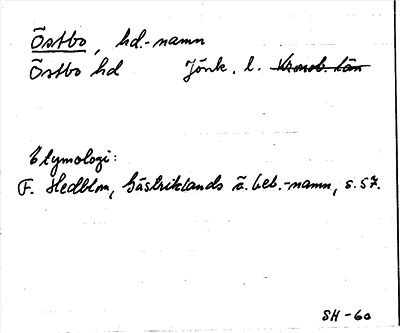 Östbo, hd.-namn
Östbo hd Jönk. l. Kronob. län
Etymologi:
F. Hedblom, Gästriklands ä. beb.-namn, s. 57.
SH-60